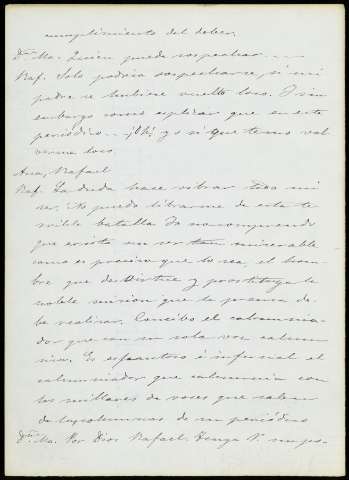 cumplimiento del deber.
Dª Ma. Quien puede sospechar.....
Raf. Solo podria sospecharse, si mi
padre se hubiese vuelto loco. I sin
embargo como esplicar que en este
periódico.. ¡Oh! yo si que temo vol
verme loco.
Ana. Rafael
Raf. La duda hace vibrar todo mi
ser. No puedo librarme de esta te
rrible batalla. Yo no comprendo
que exista un ser tan miserable
como es preciso que lo sea, el hom-
bre que desvirtue y prostituya la
noble mision que la prensa de-
be realizar. Concibo el calumnia-
dor que con su sola voz calum
nia. Es espantoso é infernal el
calumniador que calumnia con
los millares de voces que salen
de las columnas de un periódico
Dª Ma. Por Dios Rafael. Tenga V. un po-